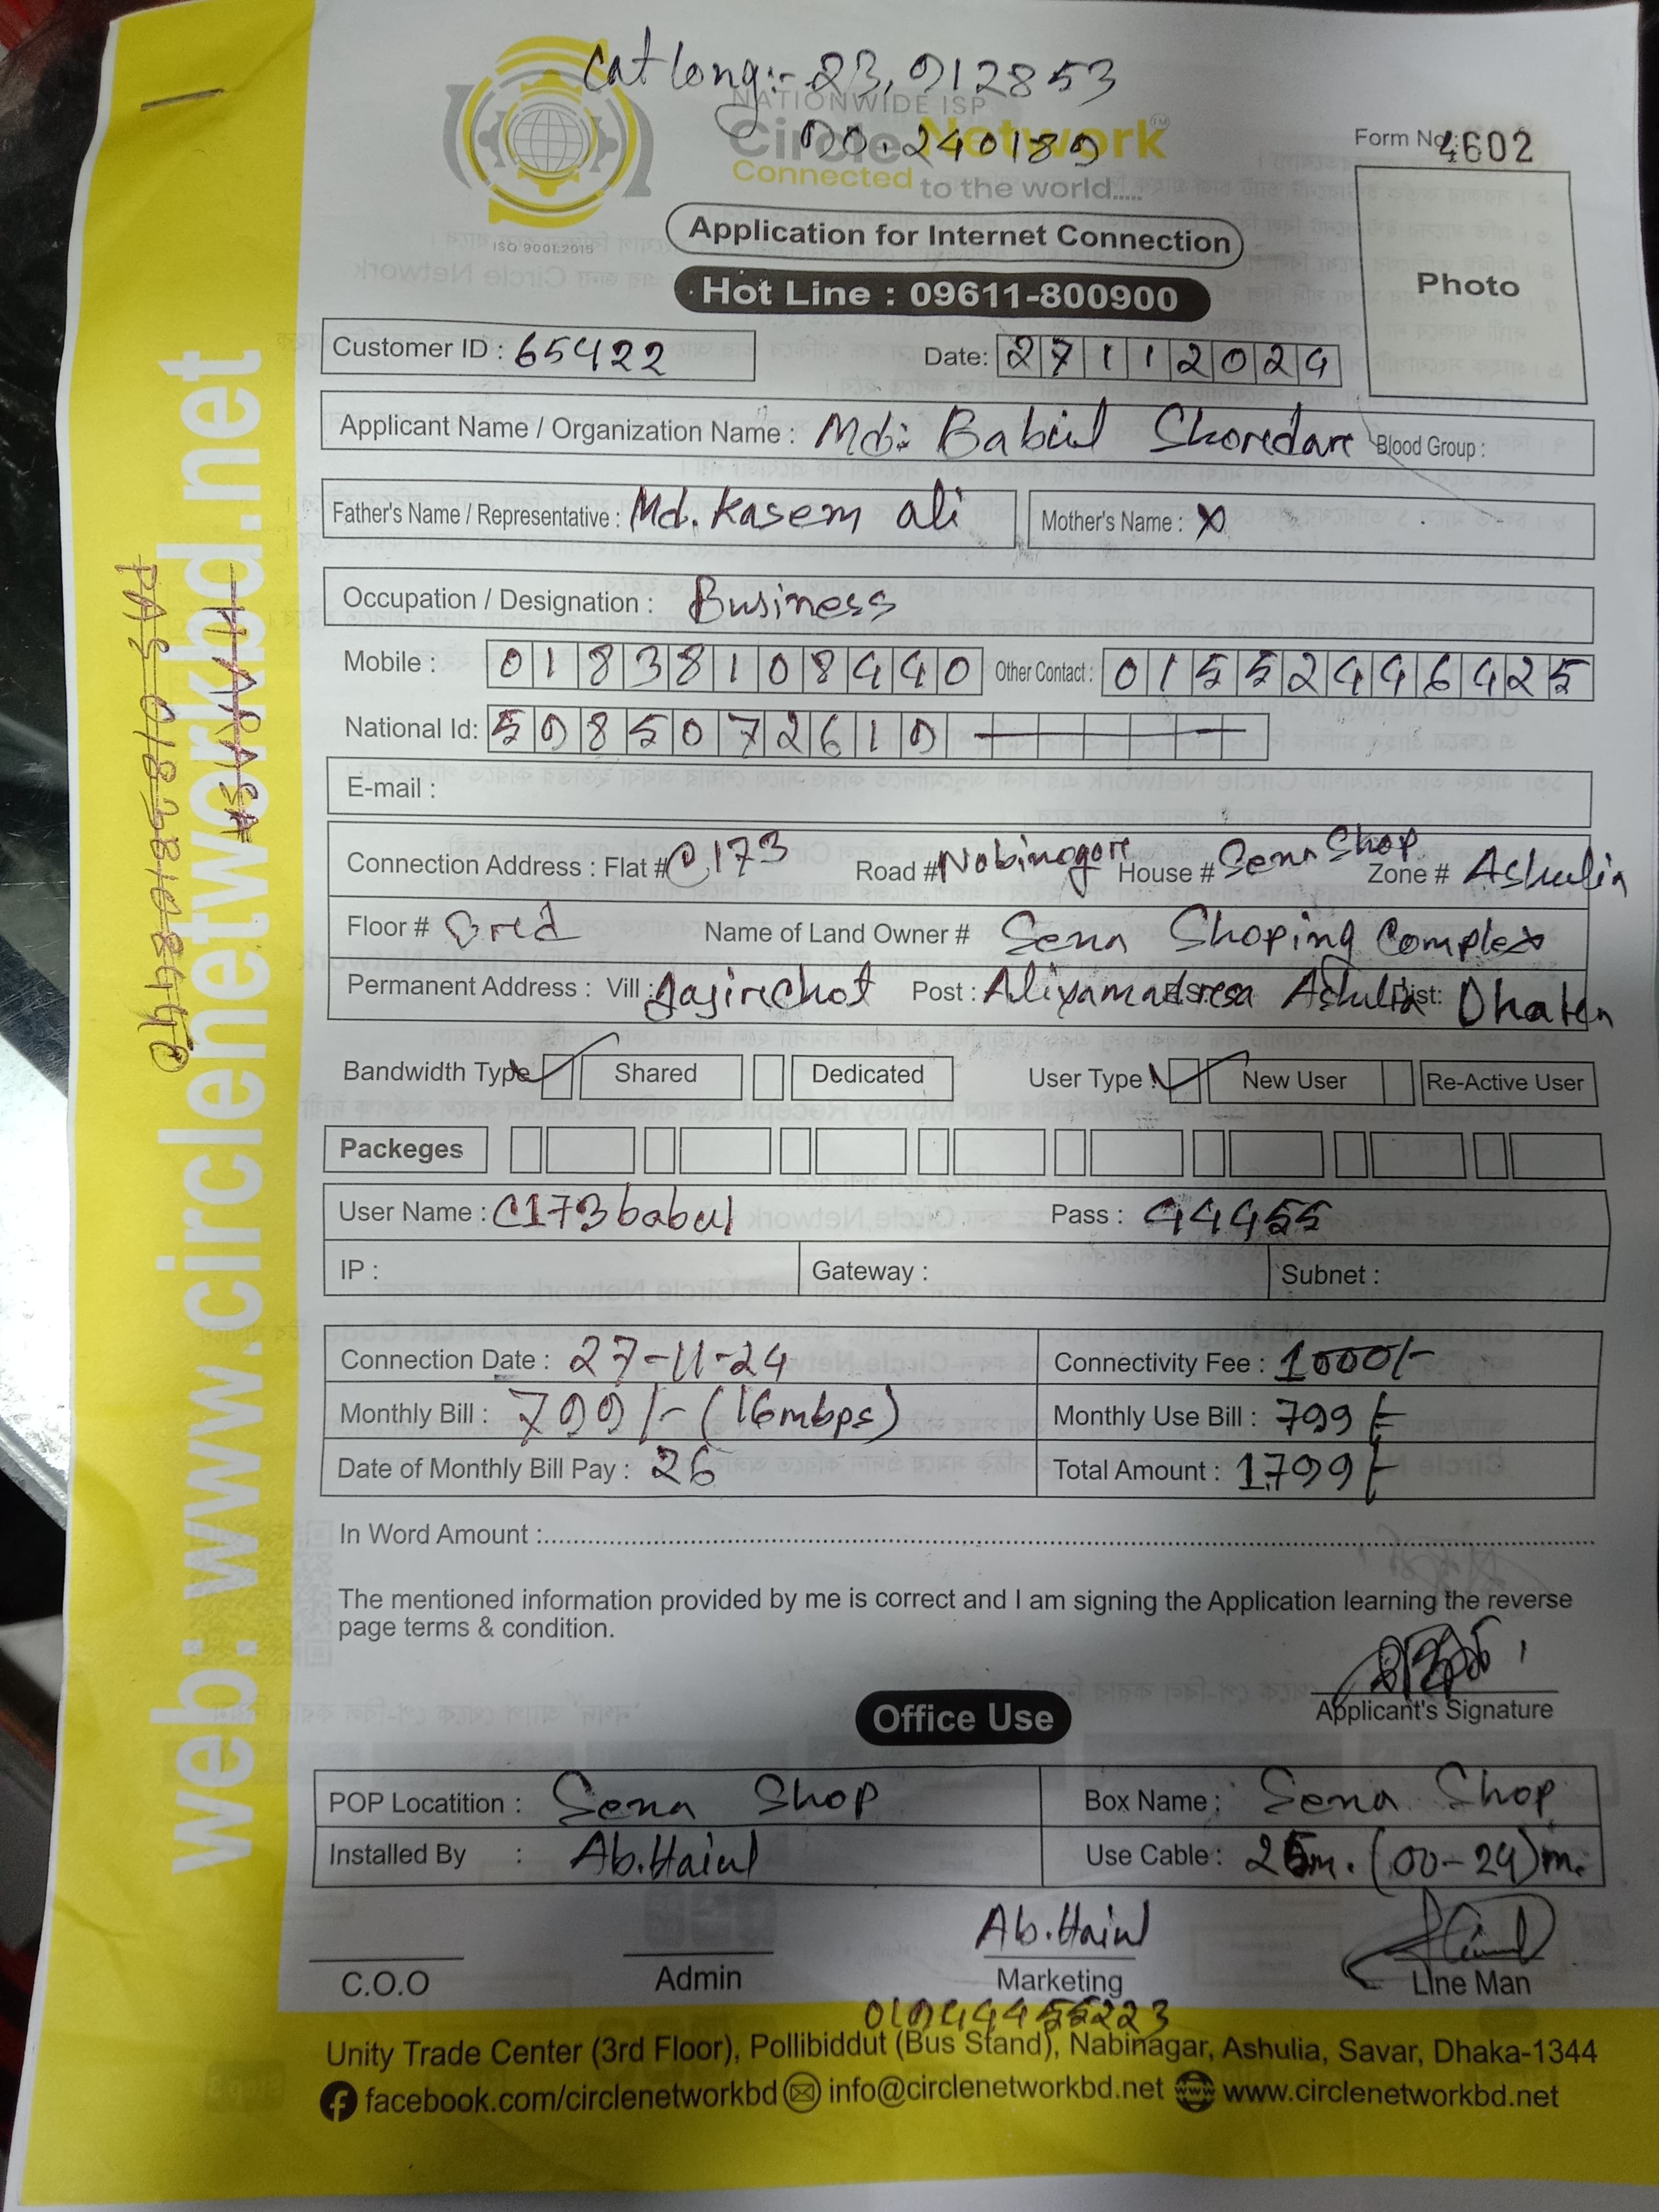 Cat long:- 23.912853
90.240189
NATIONWIDE ISP
Circle Network
TM
Connected to the world.....
ISO 9001:2015
Form No: 4602
Photo
Application for Internet Connection
Hot Line : 09611-800900
Customer ID : 65422
Date: 27112024
Applicant Name / Organization Name : Md: Babul Shordar Blood Group :
Father's Name / Representative : Md. Kasem ali Mother's Name : X
Occupation / Designation : Business
Mobile : 01838108440 Other Contact : 01552446425
National Id: 5985072619
E-mail :
Connection Address : Flat # C,173 Road # Nobinogor House # Sena Shop Zone # Ashulia
Floor # Grd Name of Land Owner # Sena Shoping Complex
Permanent Address : Vill : Gajirchot Post : Aliyamadsresa Ashulia Dist: Dhaka
Bandwidth Type Shared Dedicated User Type : New User Re-Active User
Packeges
User Name : C173babul Pass : 44455
IP : Gateway : Subnet :
Connection Date : 27-11-24 Connectivity Fee : 1000/-
Monthly Bill : 799/- (16mbps) Monthly Use Bill : 799/-
Date of Monthly Bill Pay : 26 Total Amount : 1799/-
In Word Amount :
The mentioned information provided by me is correct and I am signing the Application learning the reverse
page terms & condition.
Applicant's Signature
Office Use
POP Locatition : Sena Shop Box Name : Sena Shop
Installed By : Ab.Haiul Use Cable : 25m. (00-24)m.
Ab.Haiul
C.O.O Admin Marketing Line Man
01944455223
Unity Trade Center (3rd Floor), Pollibiddut (Bus Stand), Nabinagar, Ashulia, Savar, Dhaka-1344
facebook.com/circlenetworkbd info@circlenetworkbd.net www.circlenetworkbd.net
web: www.circlenetworkbd.net